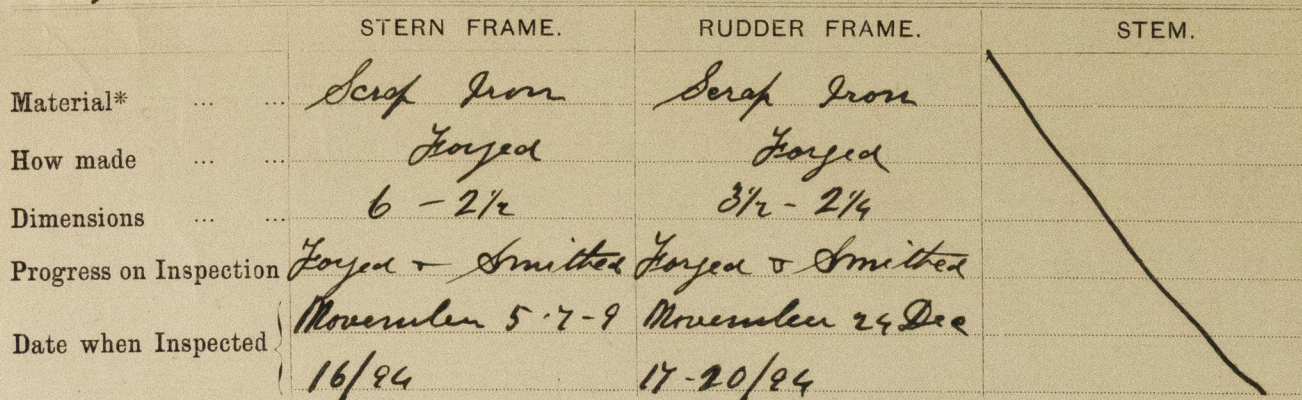 STERN FRAME. RUDDER FRAME. STEM.
Material* ... ... Scrap Iron Scrap Iron
How made ... ... Forged Forged
Dimensions ... ... 6 - 2½ 3½ - 2¼
Progress on Inspection Forged & Smithed Forged & Smithed
Date when Inspected November 5-7-9 November 24 Dec
16/94 17-20/94